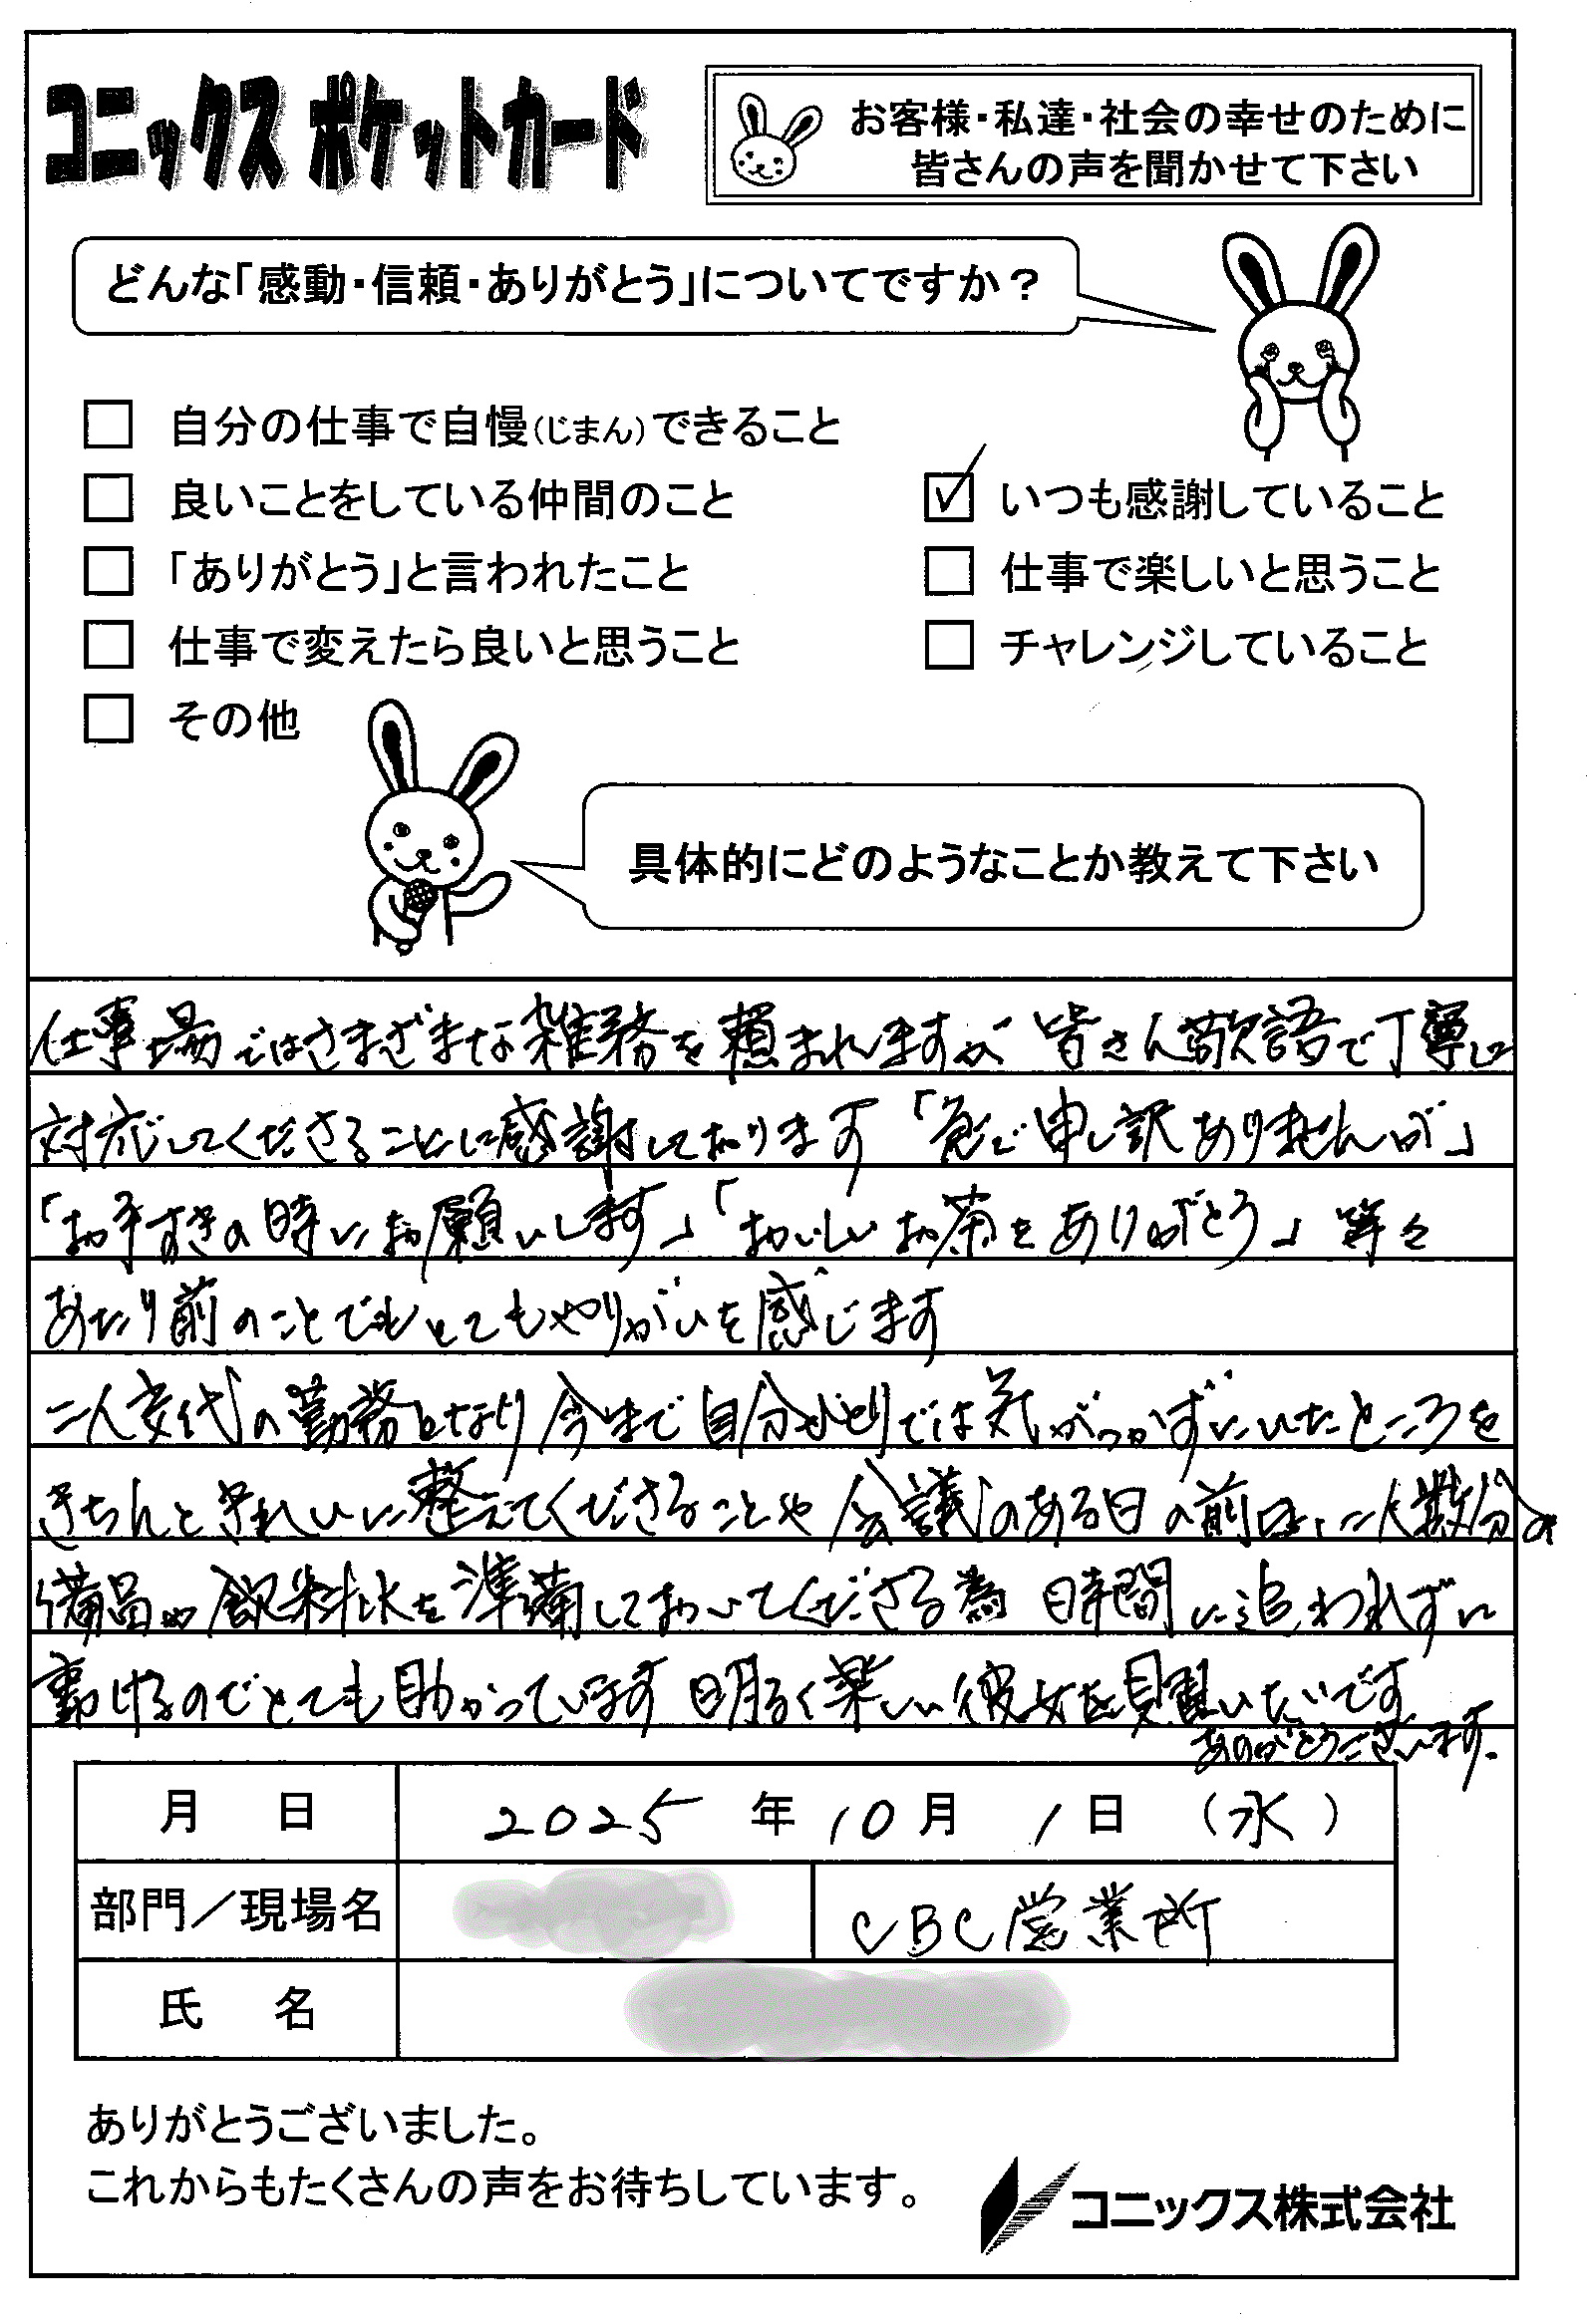 コニックス ポケットカード
お客様・私達・社会の幸せのために
皆さんの声を聞かせて下さい
どんな「感動・信頼・ありがとう」についてですか？
自分の仕事で自慢(じまん)できること
良いことをしている仲間のこと
いつも感謝していること
「ありがとう」と言われたこと
仕事で楽しいと思うこと
仕事で変えたら良いと思うこと
チャレンジしていること
その他
具体的にどのようなことか教えて下さい
仕事場ではさまざまな雑務を頼まれますが 皆さん敬語で丁寧に
対応してくださることに感謝しております「急で申し訳ありませんが」
「お手すきの時にお願いします」「おいしいお茶をありがとう」等々
あたり前のことでもとてもやりがいを感じます
二人交代の勤務となり今まで自分ひとりでは気がつかずにいたところを
きちんときれいに整えてくださることや会議のある日の前日は、二人数分の
備品や飲料水を準備しておいてくださる為 時間に追われずに
動けるのでとても助かっています 明るく楽しい彼女を見習いたいです
ありがとうございます.
月 日 2025 年 10 月 1 日 (水)
部門／現場名 CBC営業所
氏 名
ありがとうございました。
これからもたくさんの声をお待ちしています。
コニックス株式会社